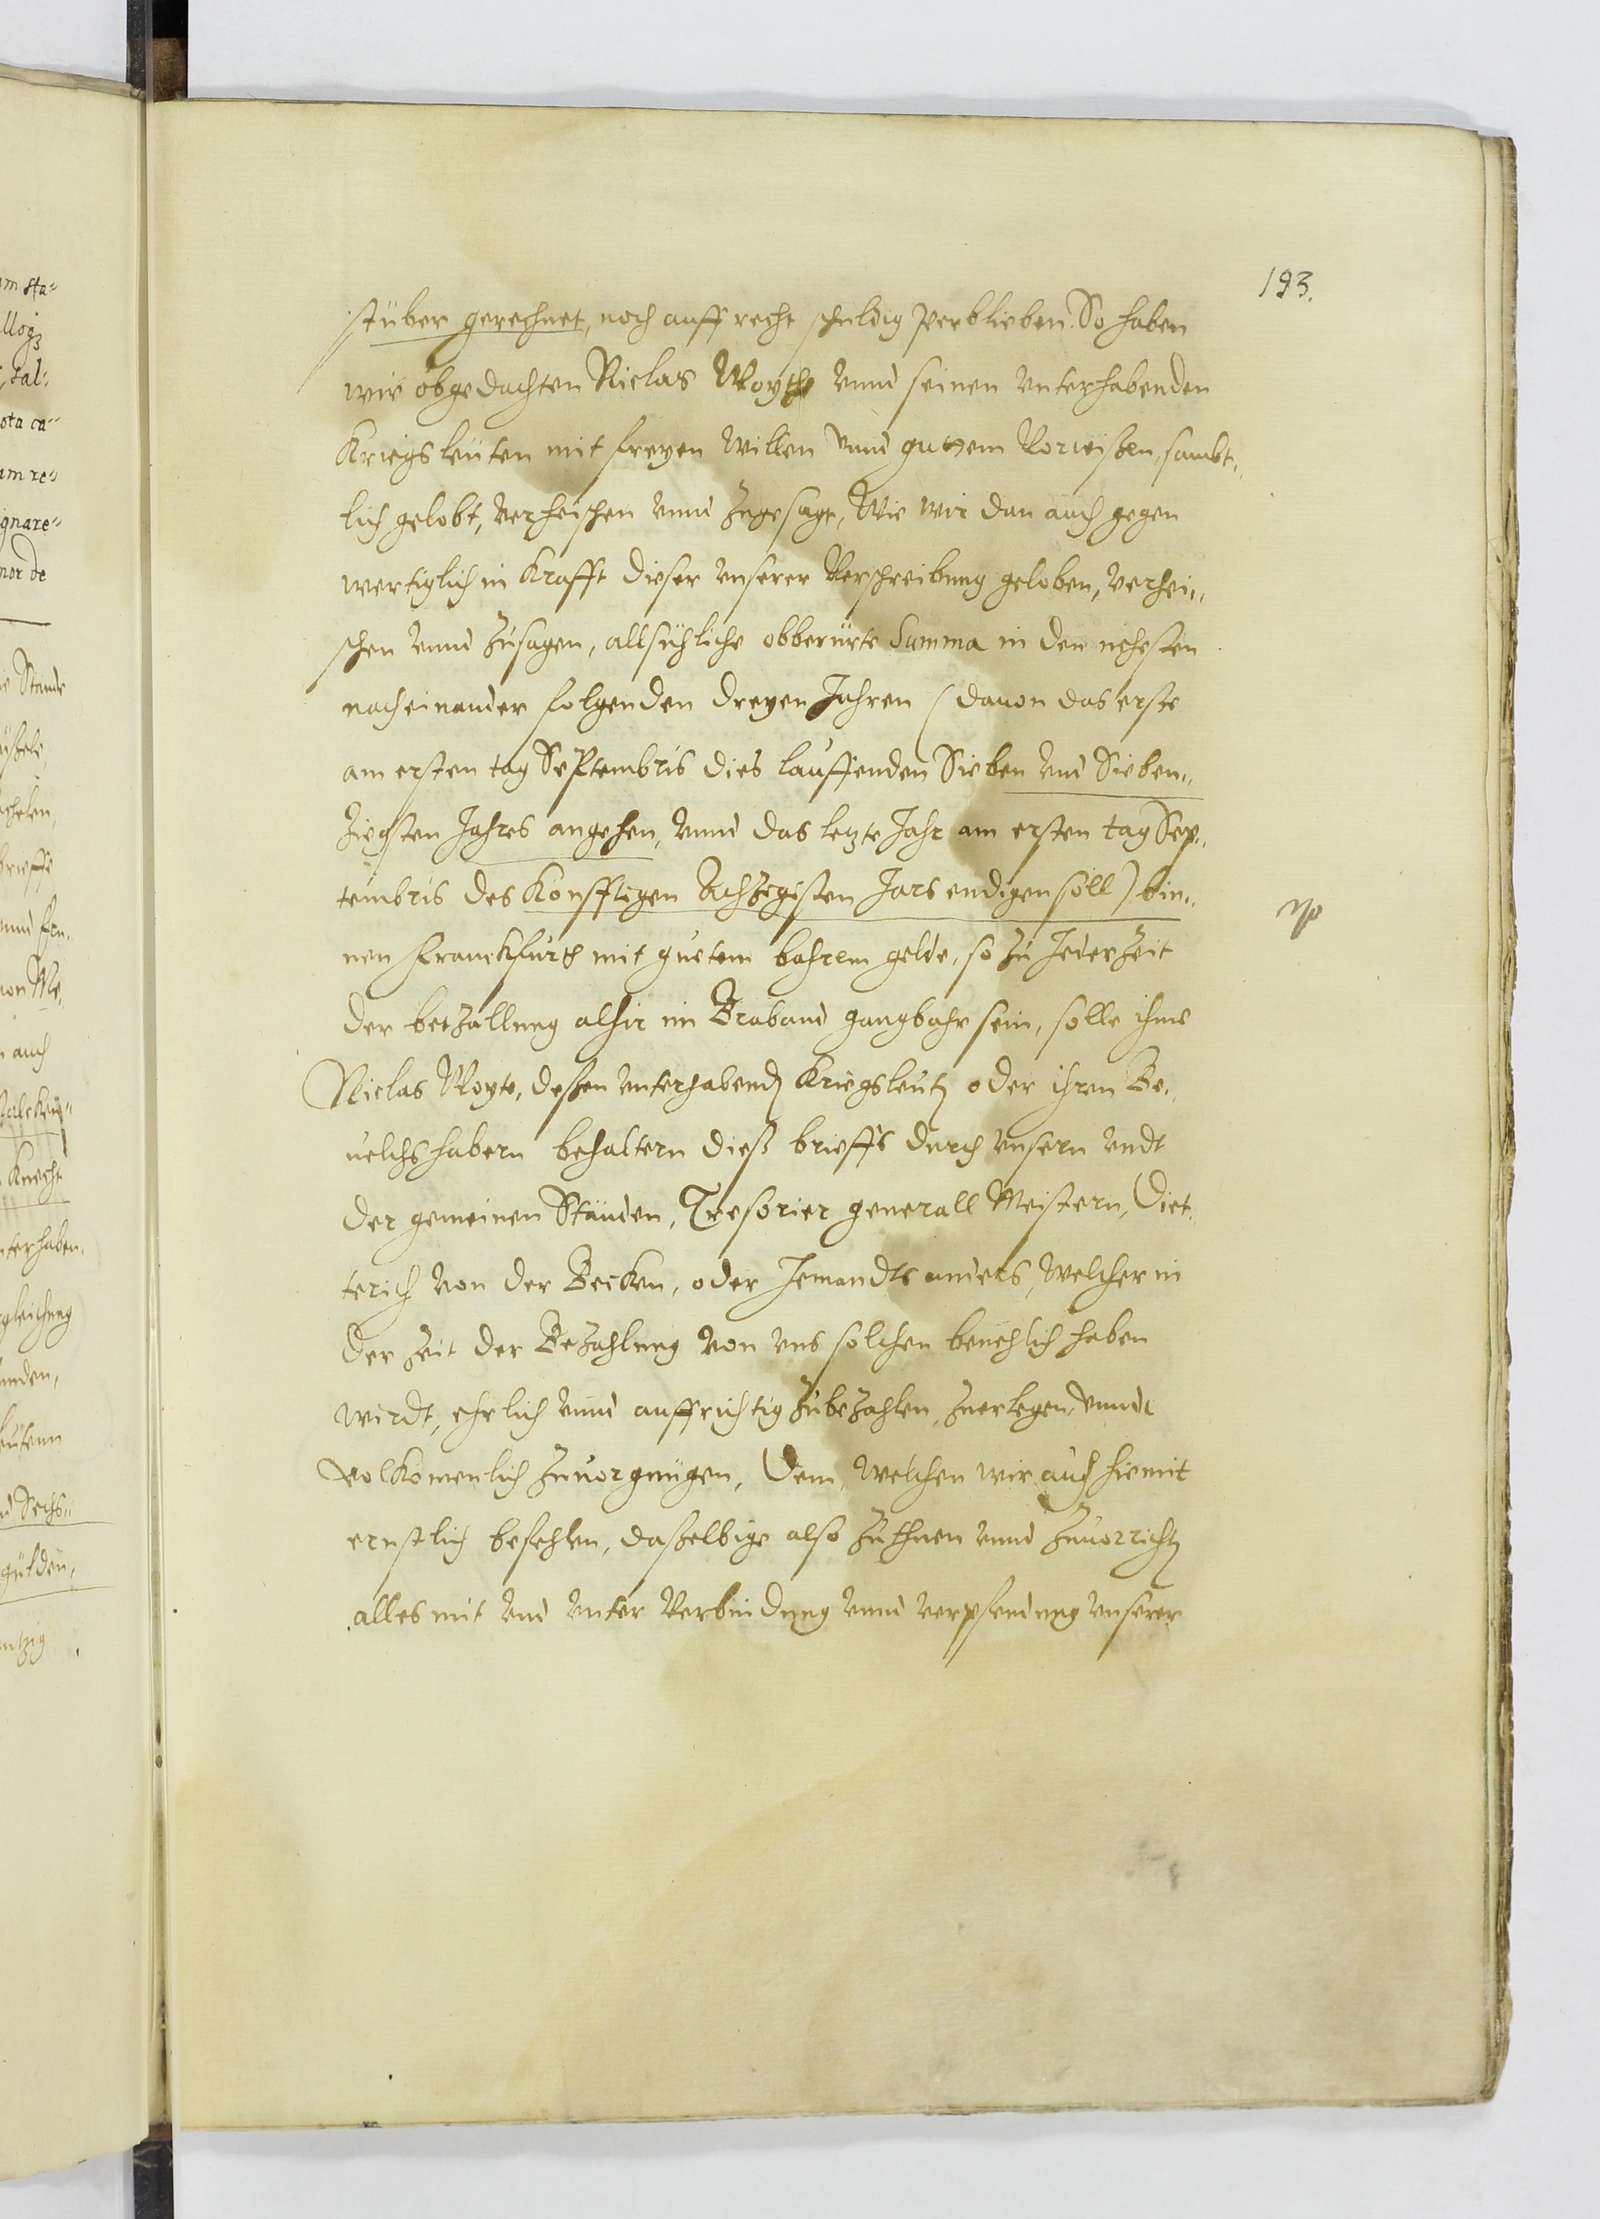 193.
stüber gerechnet, noch auffrecht schuldig verblieben. So haben
wir obgedachten Niclas Voyth vnnd seinen vnterhabenden
Kriegsleuten mit freyen willen vnnd guttem Vorwißen, sambt„
lich gelobt, verheischen vnnd zugesagt, Wie wir dan auch gegen
wertiglich in Krafft dieser vnserer Verschreibung geloben, verhei„
schen vnnd zusagen, allsühliche obberürte Summa in den nehesten
nach einander folgenden dreyen Jahren (dauon das erste
am ersten tag Septembris dies lauffenden Sieben vnd Sieben„
ziegsten Jahres angehen, vnnd das letzte Jahr am ersten tag Sep„
tembris des Konfftigen Achzigisten Jars endigen soll) bin„
nen Franckfurth mit guetem bahrem gelde, so zu Jederzeit
der betzallung alhir in Braband gangbahr sein, solle ihme
Niclas Voyte, deßen vnterhabend Kriegsleut oder ihren Be„
uelchshabern behaltern dieß brieffs durch vnsern vndt
der gemeinen Stånden, Tresorier generall Meistern, Diet„
terich von der Becken, oder Jemandts anders, welcher in
der zeit der Bezahlung von vns solchen beuehlich haben
wirdt, ehrlich vnnd auffrichtig zubezahlen, zuerlegen, vnndt
volkomenlich zuuorgnügen, Dem, welchen wir auch hiemit
ernstlich befehlen, daßelbige also zuthuen vnnd zuuorricht
alles mit vnd vnter Verbindung vnnd verpfendung vnserer